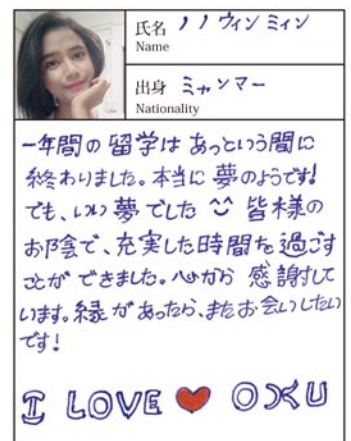 氏名 ノノ ウィン ミィン
Name
出身 ミャンマー
Nationality
一年間の留学はあっという間に
終わりました。本当に夢のようです!
でも、いい夢でした ^^ 皆様の
お陰で、充実した時間を過ごす
ことができました。心から感謝して
います。縁があったら、またお会いしたい
です!
I LOVE ❤ OKU